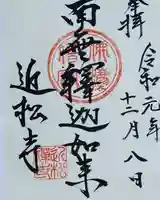 奉拝
令和元年
十二月八日
南無釋迦如来
近松寺